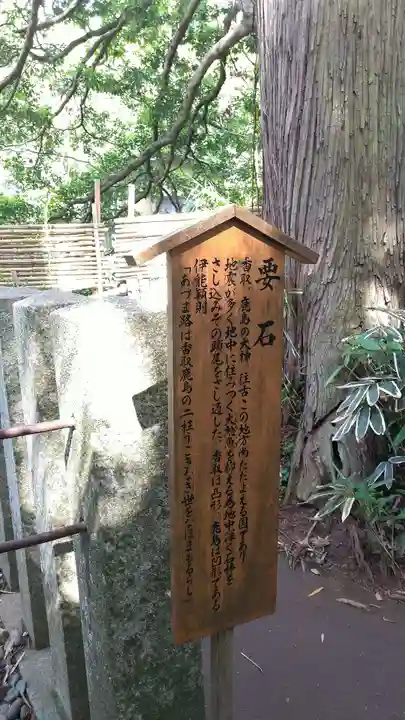 要石
香取、鹿島の大神 往古この地方尚ただよえる国であり
地震が多く地中に住みつく大鯰魚を抑える為地中深く石棒を
さし込みその頭尾をさし通した。香取は凸形、鹿島は凹形である
伊能穎則
「あづま路は香取鹿島の二柱うごきなき世をなほまもるらし」